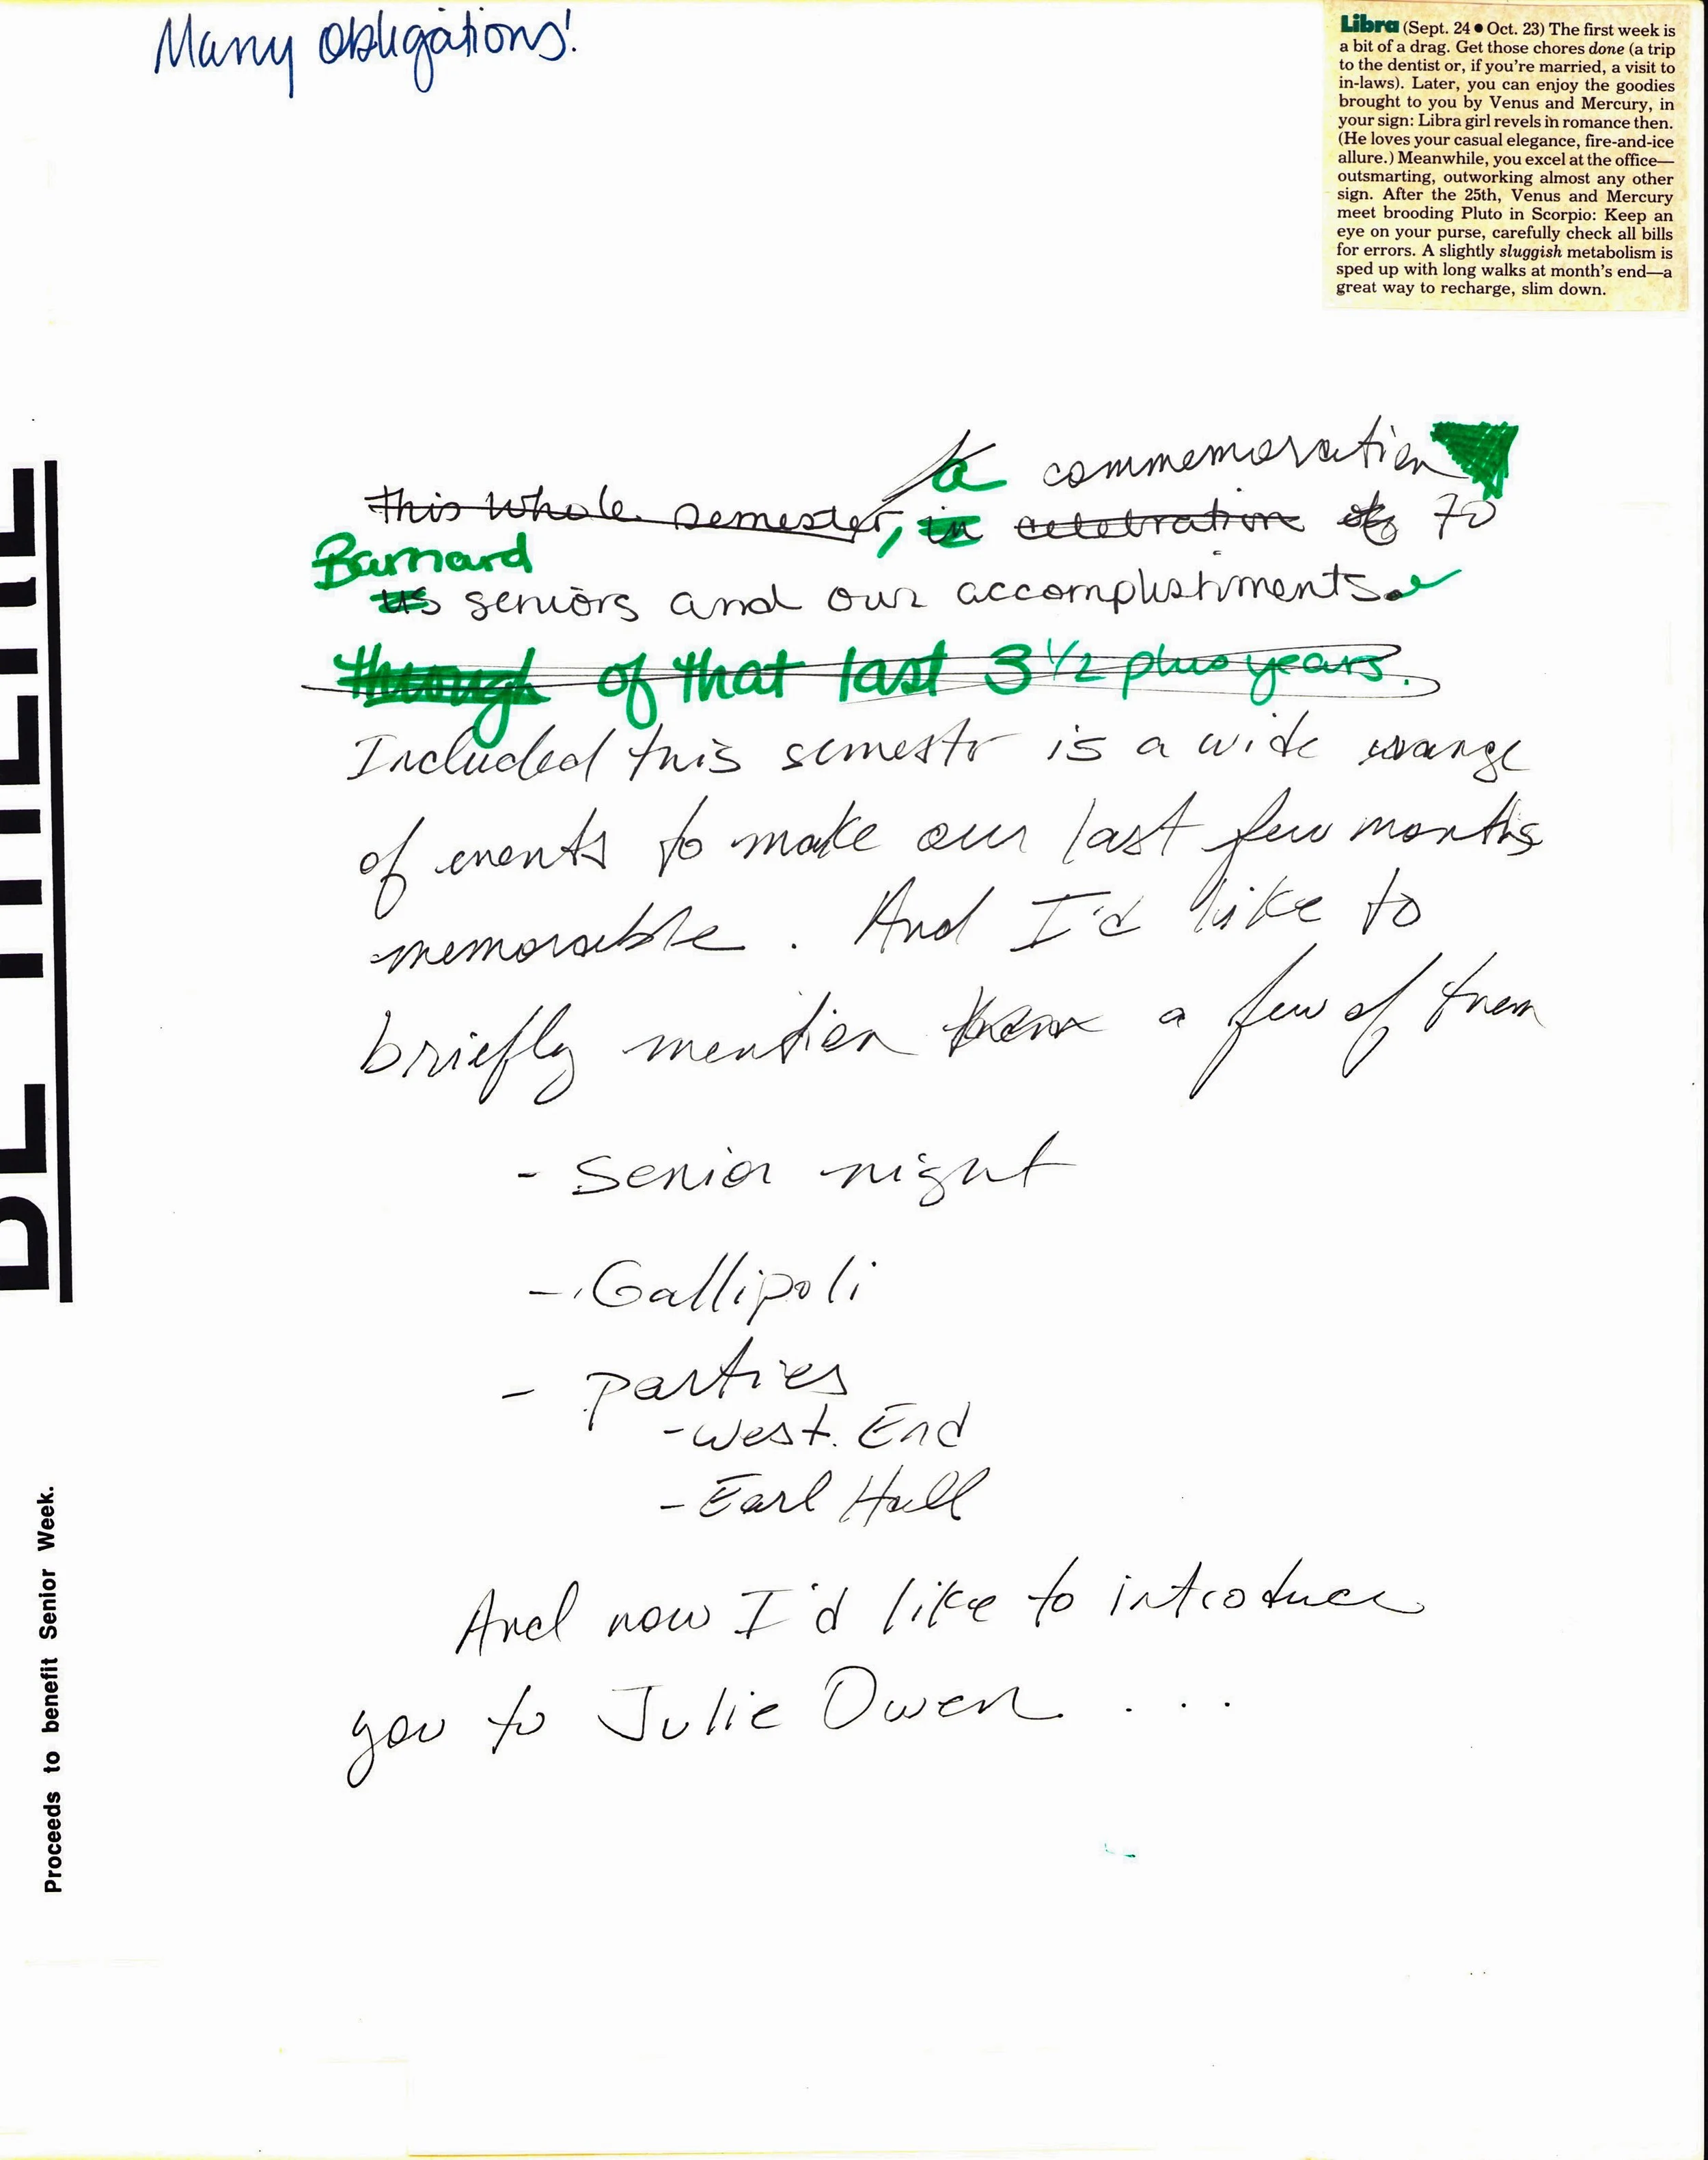 Many obligations!
Libra (Sept. 24 • Oct. 23) The first week is
a bit of a drag. Get those chores done (a trip
to the dentist or, if you're married, a visit to
in-laws). Later, you can enjoy the goodies
brought to you by Venus and Mercury, in
your sign: Libra girl revels in romance then.
(He loves your casual elegance, fire-and-ice
allure.) Meanwhile, you excel at the office—
outsmarting, outworking almost any other
sign. After the 25th, Venus and Mercury
meet brooding Pluto in Scorpio: Keep an
eye on your purse, carefully check all bills
for errors. A slightly sluggish metabolism is
sped up with long walks at month's end—a
great way to recharge, slim down.
a commemoration
this whole semester, in celebration of 70
Barnard
us seniors and our accomplishments
through of that last 3 1/2 plus years.
Included this semestr is a wide range
of events to make our last few months
memorable. And I'd like to
briefly mention them a few of them
- Senior night
- Gallipoli
- parties
- West End
- Earl Hall
And now I'd like to introduce
you to Julie Owen. . . .
BE THERE
Proceeds to benefit Senior Week.